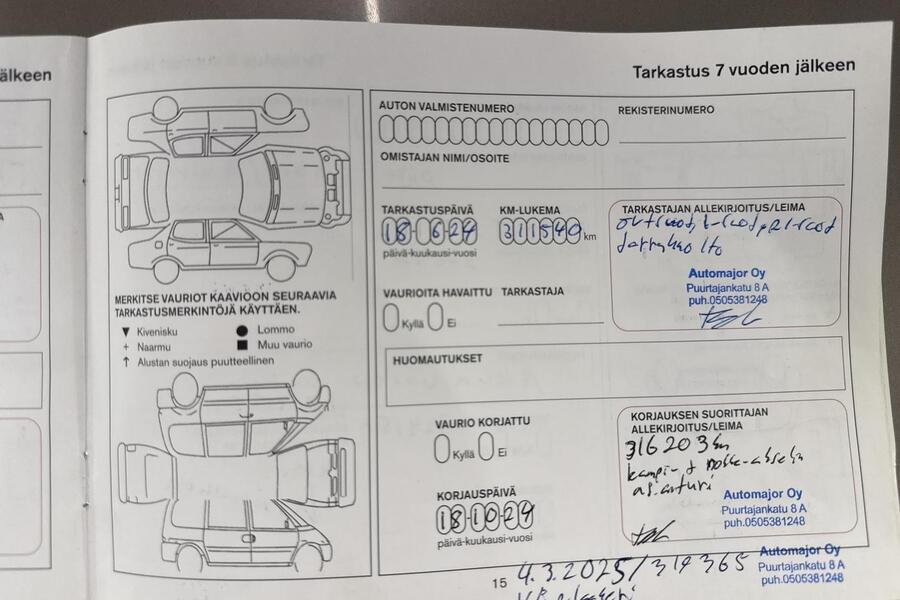 älkeen
Tarkastus 7 vuoden jälkeen
AUTON VALMISTENUMERO
REKISTERINUMERO
OMISTAJAN NIMI/OSOITE
TARKASTUSPÄIVÄ
18 6 24
päivä-kuukausi-vuosi
KM-LUKEMA
311540 km
TARKASTAJAN ALLEKIRJOITUS/LEIMA
Automajor Oy
Puurtajankatu 8 A
puh.0505381248
MERKITSE VAURIOT KAAVIOON SEURAAVIA
TARKASTUSMERKINTÖJÄ KÄYTTÄEN.
▼ Kivenisku
● Lommo
+ Naarmu
■ Muu vaurio
↑ Alustan suojaus puutteellinen
VAURIOITA HAVAITTU
Kyllä Ei
TARKASTAJA
HUOMAUTUKSET
VAURIO KORJATTU
Kyllä Ei
KORJAUSPÄIVÄ
181024
päivä-kuukausi-vuosi
KORJAUKSEN SUORITTAJAN
ALLEKIRJOITUS/LEIMA
316203km
kampi- +
Automajor Oy
Puurtajankatu 8 A
puh.0505381248
15
4.3.2025/319365
Automajor Oy
Puurtajankatu 8 A
puh.0505381248